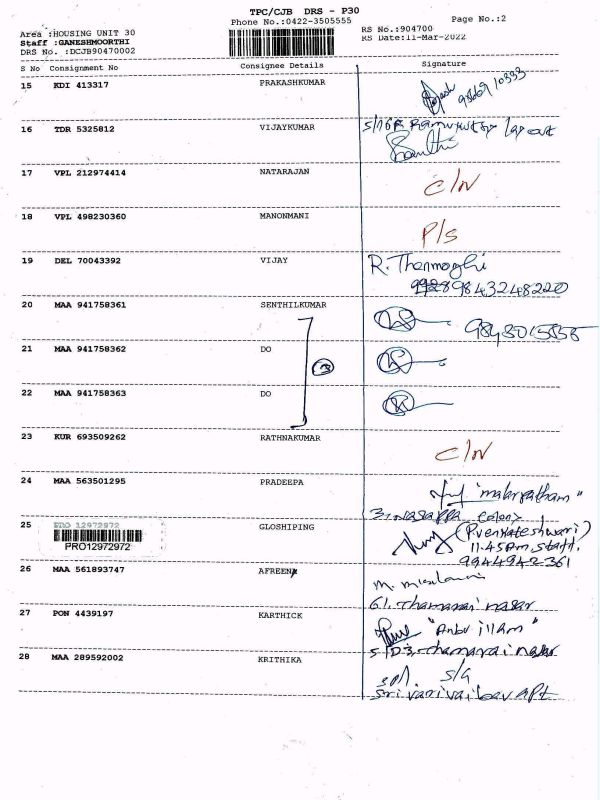 TPC/CJB DRS - P30
Phone No.:0422-3505555
Page No.:2
Area :HOUSING UNIT 30
RS No.:904700
Staff :GANESHMOORTHI
RS Date:11-Mar-2022
DRS No. :DCJB90470002
S No Consignment No Consignee Details Signature
15 KDI 413317 PRAKASHKUMAR
16 TDR 5325812 VIJAYKUMAR
17 VPL 212974414 NATARAJAN C/N
18 VPL 498230360 MANONMANI P/S
19 DEL 70043392 VIJAY R. Thenmoghi
9843248220
20 MAA 941758361 SENTHILKUMAR
21 MAA 941758362 DO
22 MAA 941758363 DO
23 KUR 693509262 RATHNAKUMAR C/N
24 MAA 563501295 PRADEEPA
colony
25 PRO 12972972 GLOSHIPING (P.venkateshwari)
PRO12972972 11.45Am, staff.
9944942361
26 MAA 561893747 AFREEN
61, thamarai nagar
27 PON 4439197 KARTHICK "Anbu illam"
thamarai nagar
28 MAA 289592002 KRITHIKA S/G